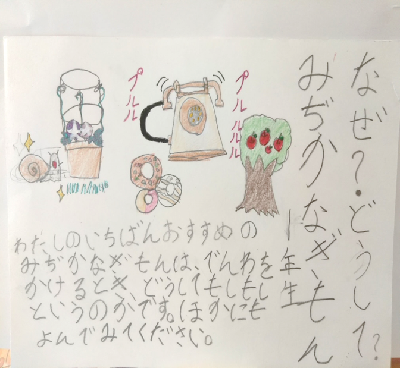 なぜ?・どうして?
みぢかなぎもん
一年生
プルルル
プルルルル
わたしのいちばんおすすめの
みぢかなぎもんは、でんわを
かけるとき、どうしてもしもし
というのかです。ほかにも
よんでみてください。